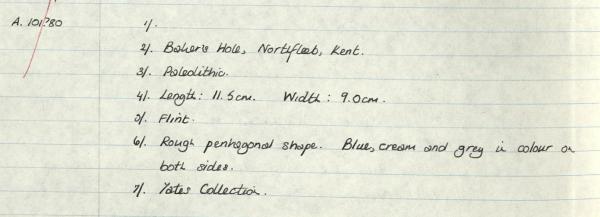 A. 101780 1/.
2/. Baker's Hole, Northfleet, Kent.
3/. Paleolithic.
4/. Length: 11.5cm. Width: 9.0cm.
5/. Flint.
6/. Rough pentagonal shape. Blue, cream and grey in colour on
both sides.
7/. Yates Collection.